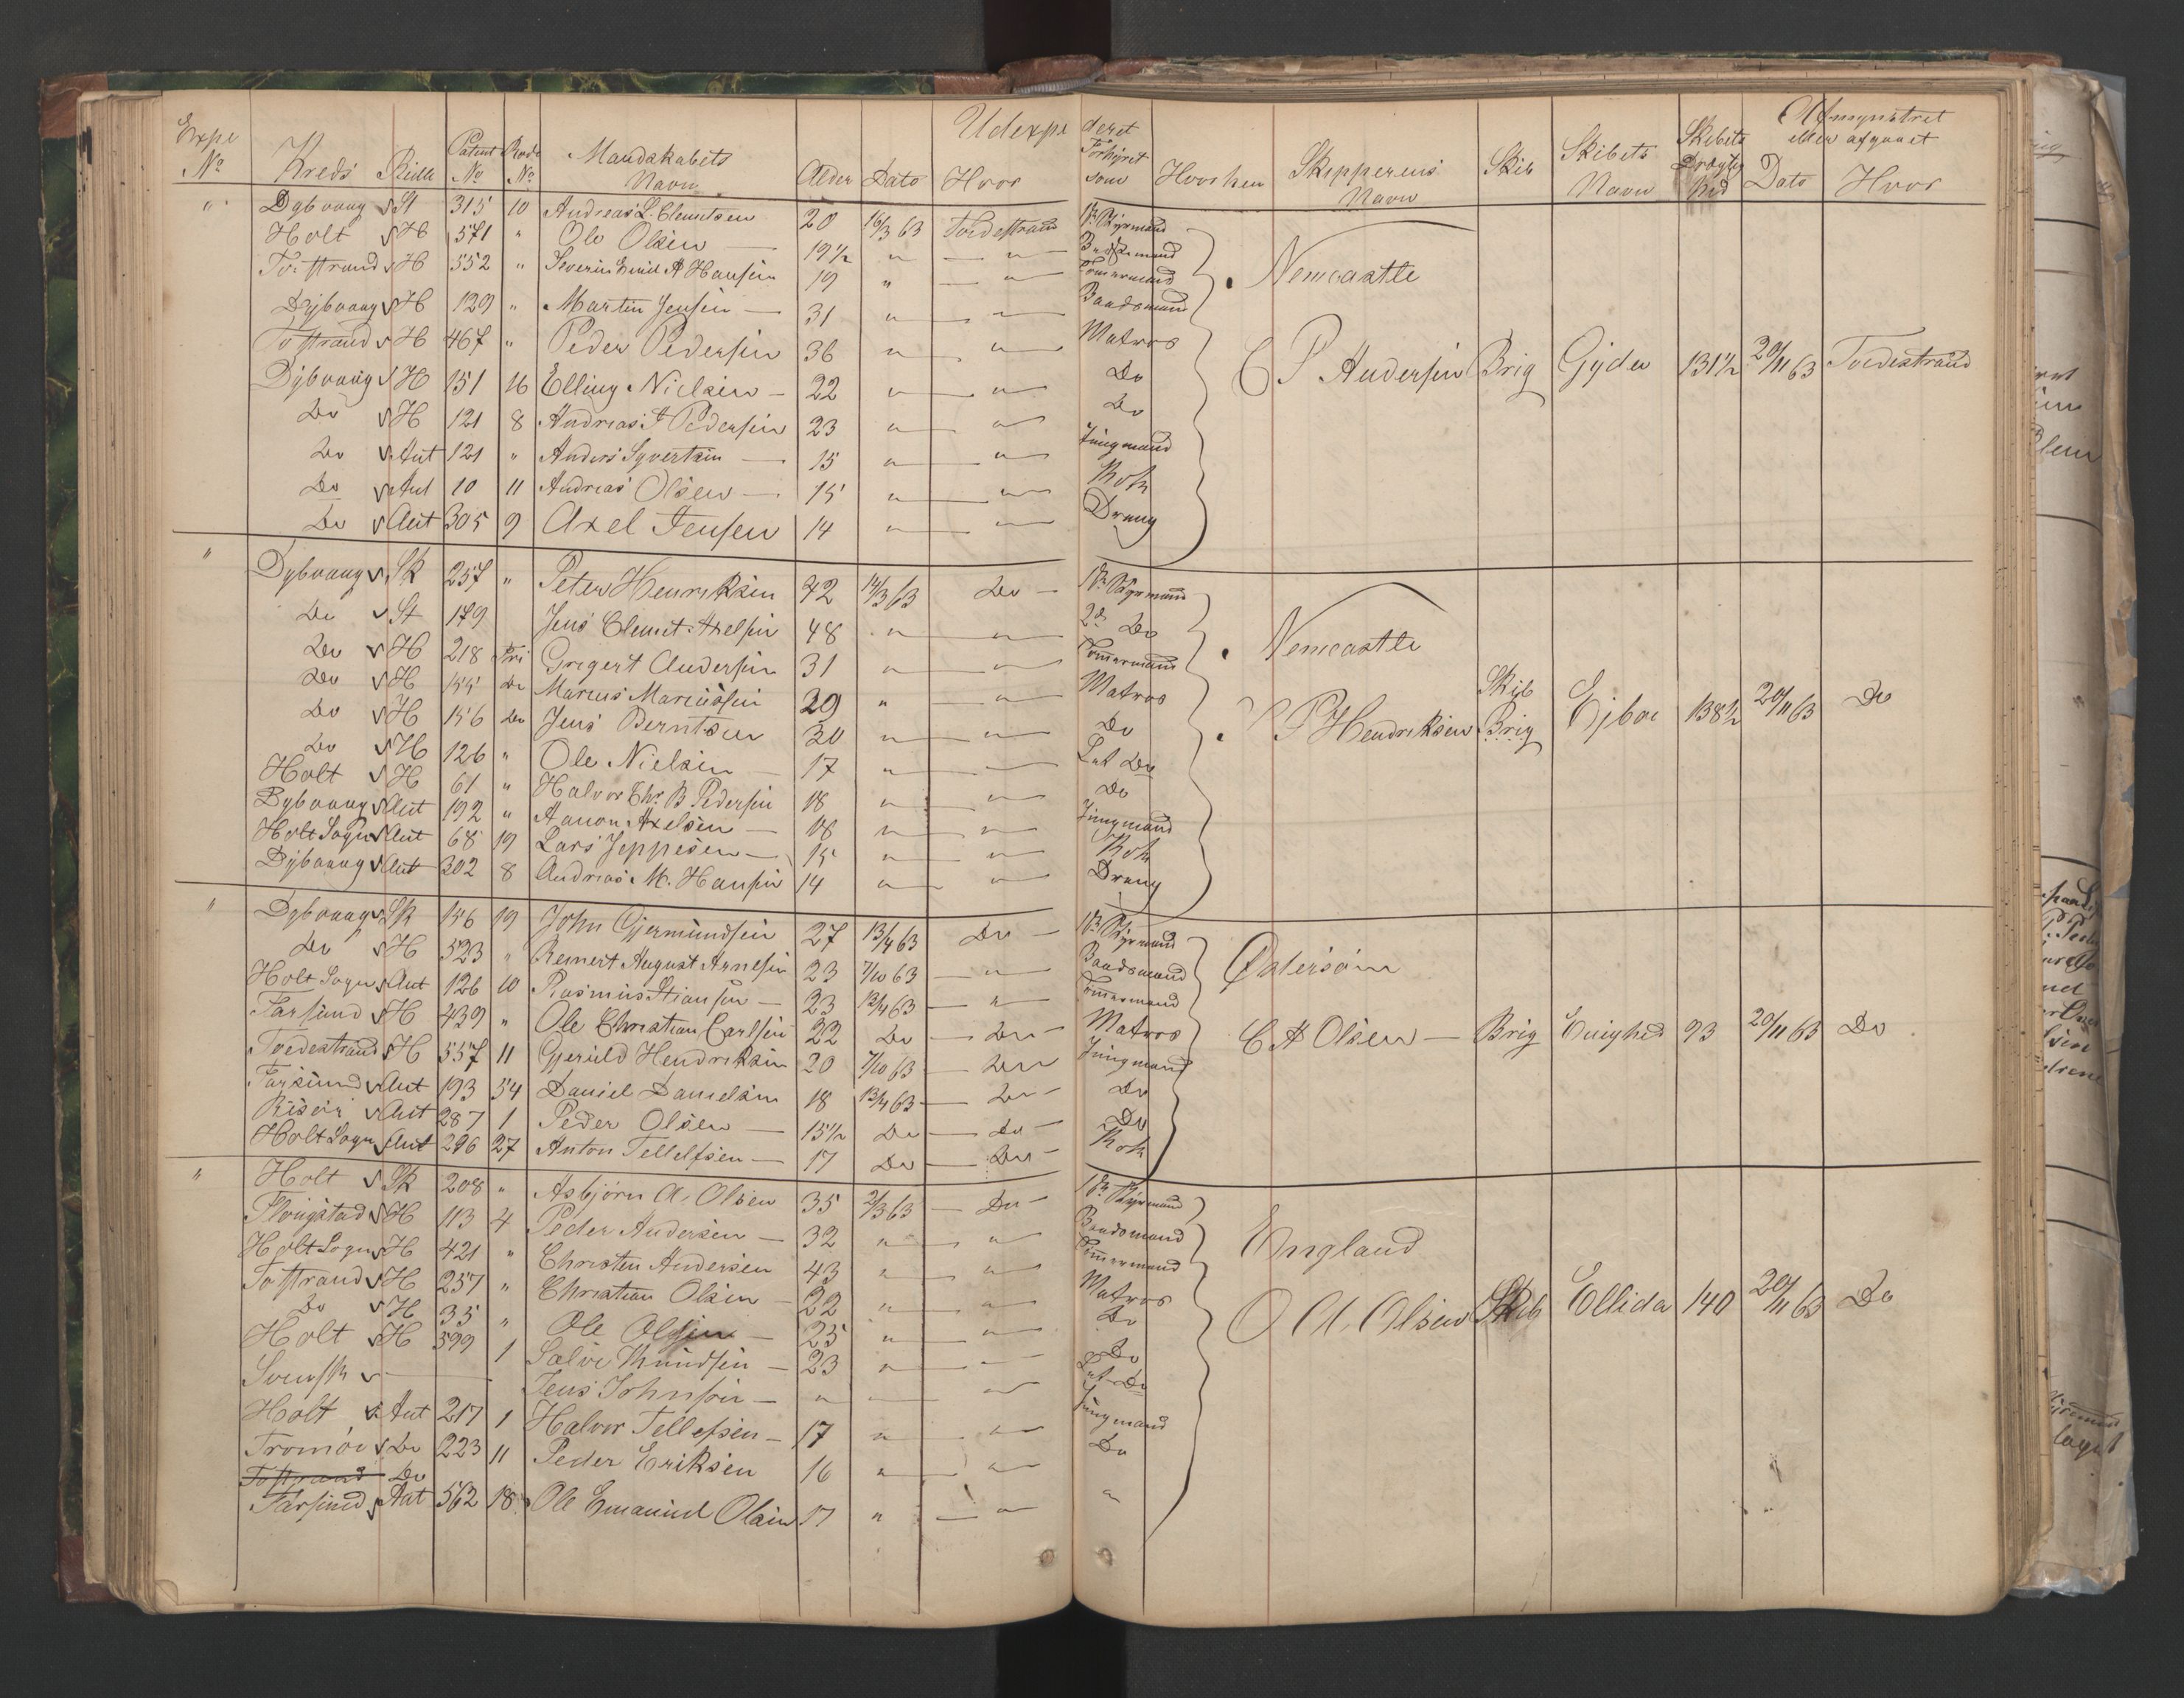 Expe No Kreds Rulle Patent No Rode No Mandskabets Navn Alder Dato Hvor Udexpederet Forhyret som Hvorhen Skipperens Navn Skib Skibets Navn Skibets Drægtighed Afmynstret eller afgaaet Dato Hvor
" Dybvaag St 315 10 Andreas L. Clemetsen 20 16/3 63 Tvedestrand 1ste Styrmand
Holt H 571 " Ole Olsen — 19 1/2 " — " Baadsmand
Tvestrand H 552 " Severin Emil A Hansen 19 " — " Tømmermand Newcastle
Dybvaag H 129 " Martin Jensen — 31 " — " Baadsmand
Tvestrand H 467 " Peder Pedersen 36 " — " Matros
Dybvaag H 151 16 Elling Nielsen — 22 " — " Do C P Andersen Brig Gyda 131 1/2 20/11 63 Tvedestrand
Do H 121 8 Andreas P Pedersen 23 " — " Do
Do Ant 121 " Anders Syvertsen — 15 " — " Jungmand
Do Ant 10 11 Andreas Olsen — 15 " — " Kok
Do Ant 305 9 Axel Jensen 14 " — " Dreng
" Dybvaag Sk 257 " Peter Henriksen 42 14/3 63 Do — 1ste Styrmand
Do St 179 Jens Clemet Axelsen 48 " — " 2d Do
Do H 218 fri Gregert Andersen 31 " — " Tømmermand Newcastle
Do H 155 Do Marcus Marcussen 29 " — " Matros
Do H 156 Do Jens Berntsen 30 " — " Do P Hendriksen Skib Brig Ejboe 138 1/2 20/11 63 Do
Do H 126 " Ole Nielsen — 17 " — " Let Do
Holt H 61 " Halvor Chr. B. Pedersen 18 " — " Do
Dybvaag Ant 192 " Aanon Axelsen — 18 " — " Jungmand
Holt Sogn Ant 68 19 Lars Jeppesen — 15 " — " Kok
Dybvaag Ant 302 8 Andreas M. Hansen 14 " — " Dreng
" Dybvaag Sk 156 19 John Gjermundsen 27 13/4 63 Do — 1ste Styrmand
Do H 523 " Reinert August Arnesen 23 7/10 63 — " Baadsmand Østersøen
Holt Sogn Ant 126 10 Rasmus Stiansen — 23 13/4 63 — " Tømmermand
Farsund H 439 " Ole Christian Carlsen 22 Do — Do — Matros C A Olsen — Brig Enighed 93 20/11 63 Do
Tvedestrand H 557 11 Gjeruld Hendriksen 20 7/10 63 — Do Jungmand
Farsund Ant 193 54 Daniel Danielsen 18 13/4 63 — Do — Do
Risør Ant 287 1 Peder Olsen — 15 1/2 Do — Do — Do
Holt Sogn Ant 296 27 Anton Tellefsen — 17 Do — Do — Kok
" Holt Sk 208 " Asbjørn A. Olsen 35 2/3 63 — Do — 1ste Styrmand
Flougstad H 113 4 Peder Andersen — 32 " — " Baadsmand
Holt Sogn H 421 " Christen Andersen 43 " — " Tømmermand England
Tvestrand H 257 " Christian Olsen — 22 " — " Matros
Do H 35 " Ole Olsen — 25 " — " Do O A. Olsen Skib Ellida 140 20/11 63 Do
Holt H 599 1 Salve Knudsen — 23 " — " Do
Svensk — Jens Johnsen — " — " Let Do
Holt Ant 217 1 Halvor Tellefsen — 17 " — " Jungmand
Tromøe Do 223 11 Peder Eriksen 16 " — " Do
Tvestrand Do
Farsund Ant 562 18 Ole Emanuel Olsen 17 " — " "